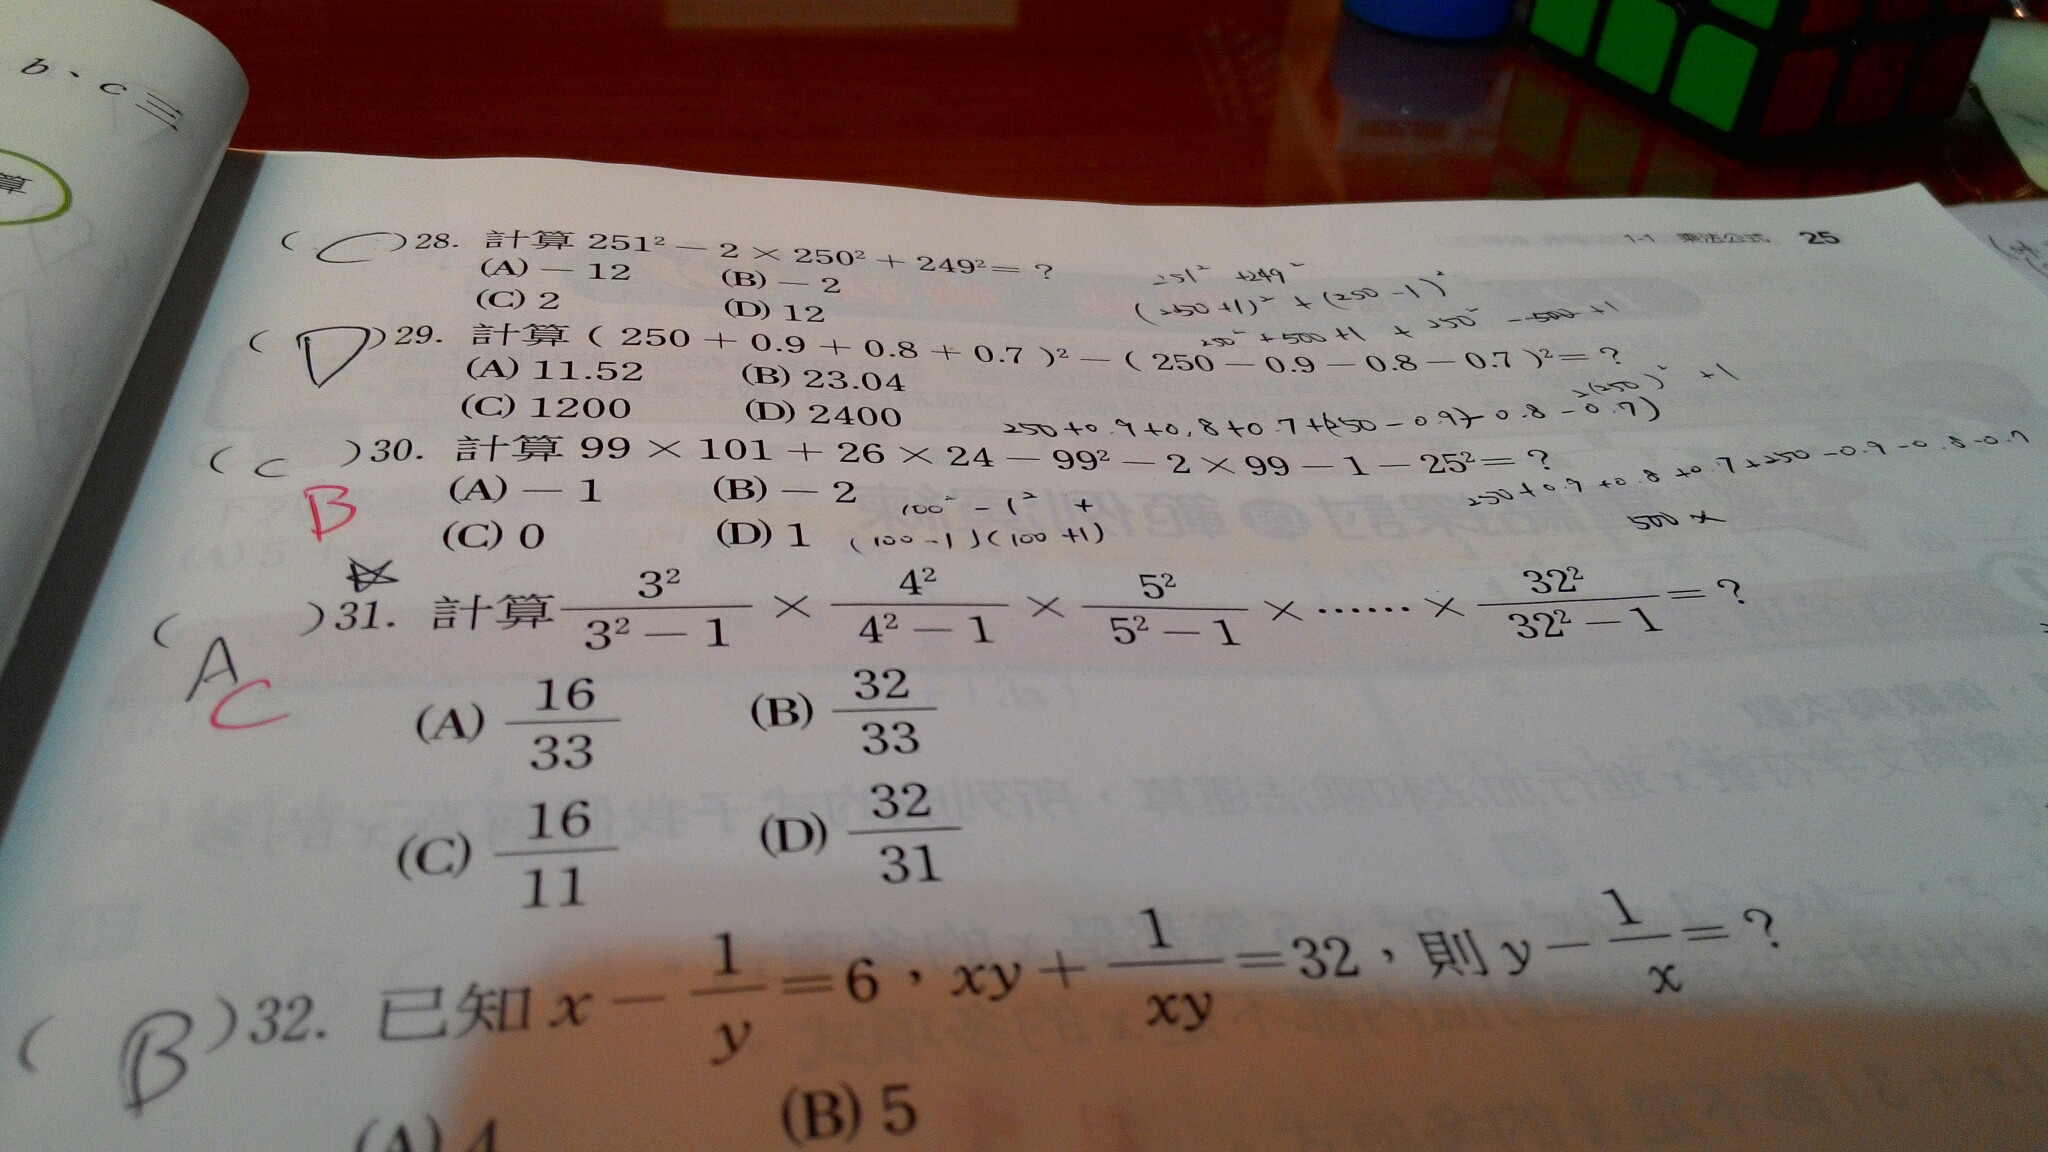 b、c三
算
1-1 乘法公式 25
( C )28. 計算 251² － 2 × 250² ＋ 249² ＝ ?
(A) － 12 (B) － 2
(C) 2 (D) 12
251² +249²
(250 +1)² + (250 -1)²
250² +500 +1 + 250² -500 +1
2(250)² +1
( D )29. 計算 ( 250 ＋ 0.9 ＋ 0.8 ＋ 0.7 )² － ( 250 － 0.9 － 0.8 － 0.7 )² ＝ ?
(A) 11.52 (B) 23.04
(C) 1200 (D) 2400
250+0.9+0.8+0.7+(250-0.9)-0.8-0.7)
250+0.9+0.8+0.7+250-0.9-0.8-0.7
500 ×
( C )30. 計算 99 × 101 ＋ 26 × 24 － 99² － 2 × 99 － 1 － 25² ＝ ?
B
(A) － 1 (B) － 2
(C) 0 (D) 1
100² - 1² +
(100 -1)(100 +1)
( A )31. 計算 3²/(3²－1) × 4²/(4²－1) × 5²/(5²－1) × …… × 32²/(32²－1) ＝ ?
C
(A) 16/33 (B) 32/33
(C) 16/11 (D) 32/31
( B )32. 已知 x － 1/y ＝6，xy＋ 1/xy ＝32，則 y－ 1/x ＝ ?
(A) 4 (B) 5